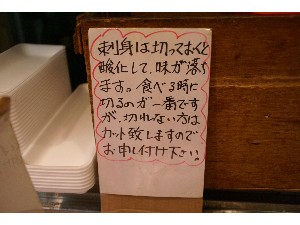 刺身は切っておくと
酸化して、味が落ち
ます。食べる時に
切るのが一番です
が、切れない方は
カット致しますので
お申し付け下さい!